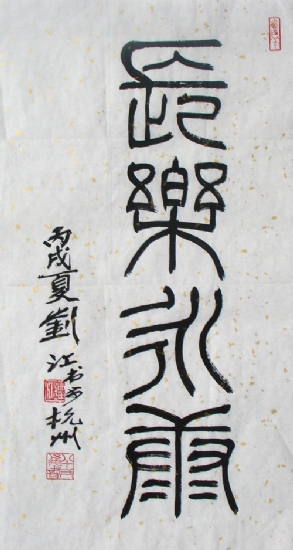 長樂永康
丙戌夏劉江书於杭州